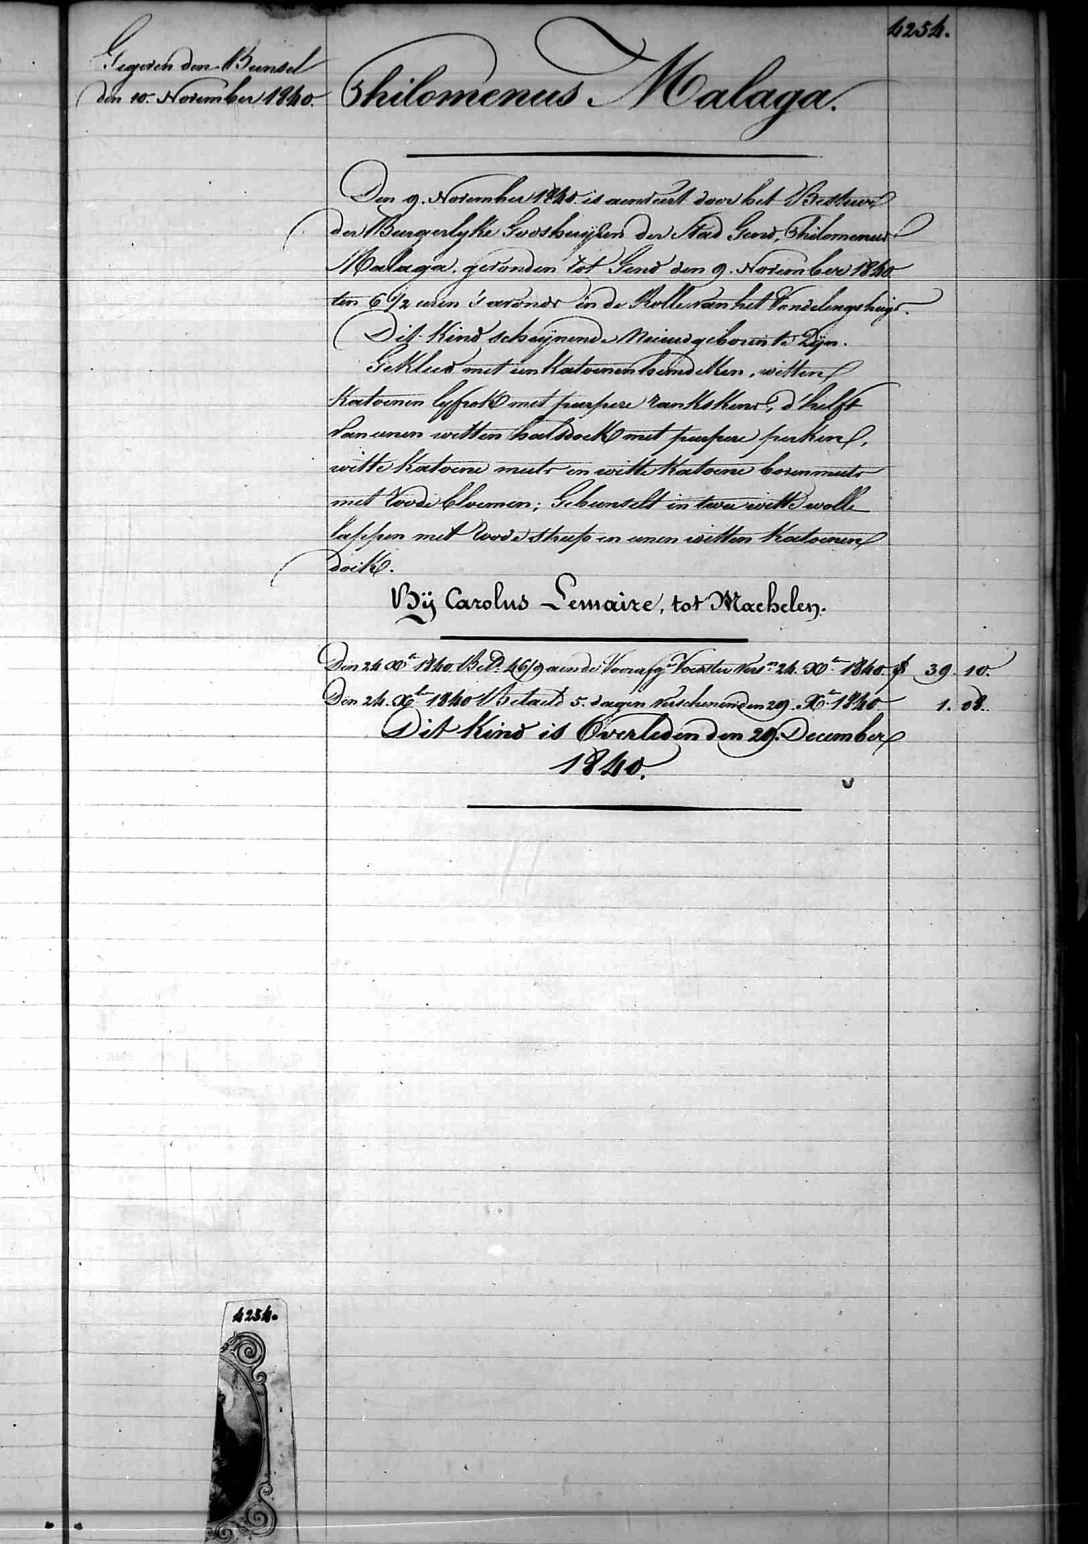 4254.
Gegeven den Bunsel
den 10. November 1840.
Philomenus Malaga.
Den 9. November 1840. is aenveêrt door het Bestuur
der Burgerlyke Godshuijzen der Stad Gend, Philomenus
Malaga. gevonden tot Gend den 9. November 1840
ten 6 1/2 uren s'avonds in de Rolle van het Vondelingshuijs.
Dit Kind scheijnende Nieuwgeboren te Zyn.
Gekleed met een Katoenen hemdeken, witten
Katoenen lyfrok met purpere rankskens, d'helft
van eenen witten halsdoek met purpere perken,
witte Katoene muts en witte Katoene bovenmuts
met roode bloemen; Gebunselt in twee witte wolle
lappen met roode streep en eenen witten Katoenen
doek.
Bÿ Carolus Lemaire, tot Machelen.
Den 24 Xb 1840 Betd. 46/9 aen de Voedster 24. Xb 1840. f 39 10.
Den 24. Xb 1840 Betaeld 5. dagen verschenen den 29. Xb 1840 1. 08.
Dit Kind is Overleden den 29. December
1840.
4254.